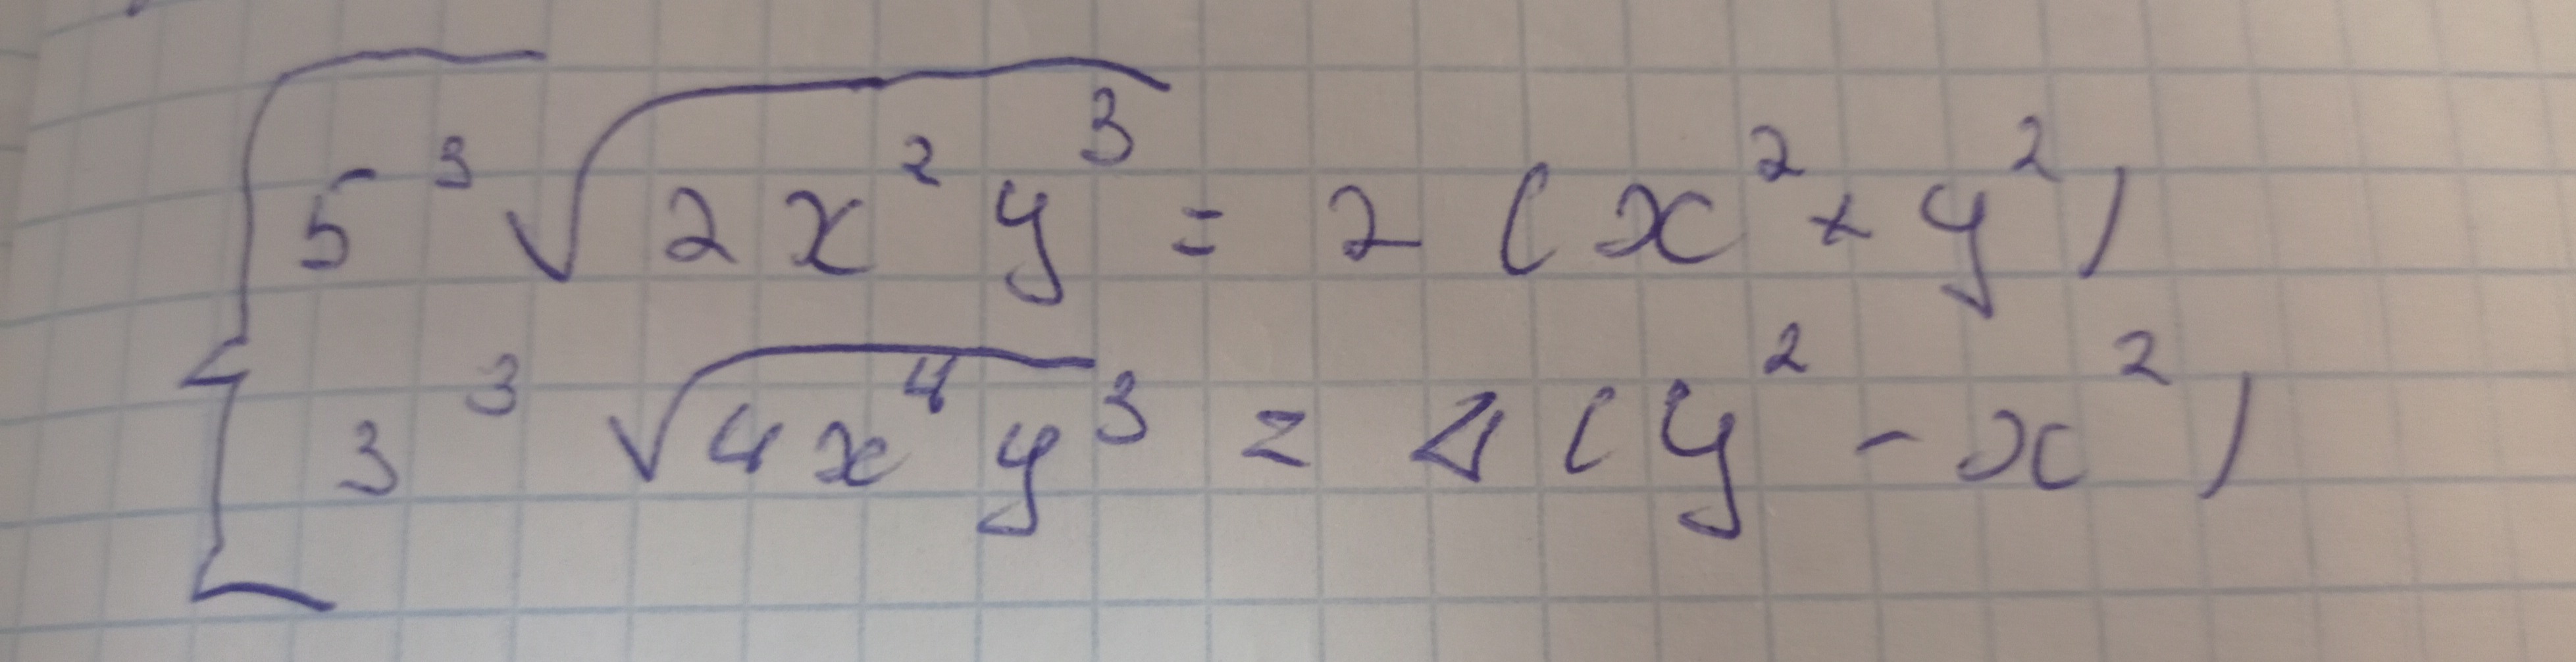 5 ³√(2x²y³) = 2(x² + y²)
3 ³√(4x⁴y³) = 4(y² - x²)